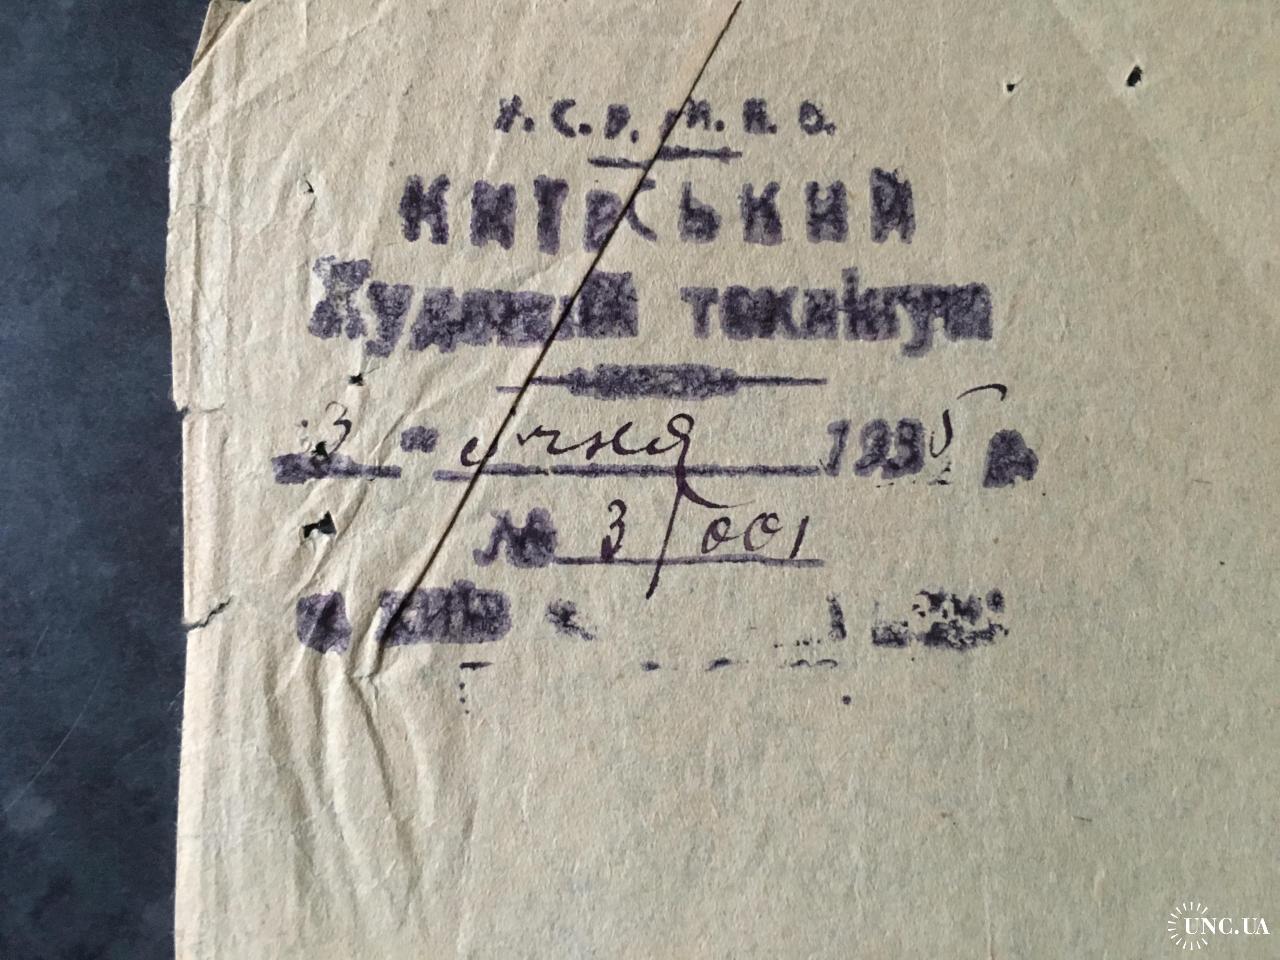 У.С.Р. М.К.О.
КИЇВСЬКИЙ
Художній технікум
3 " січня 1935 р.
№ 3/001
м. Київ
UNC.UA